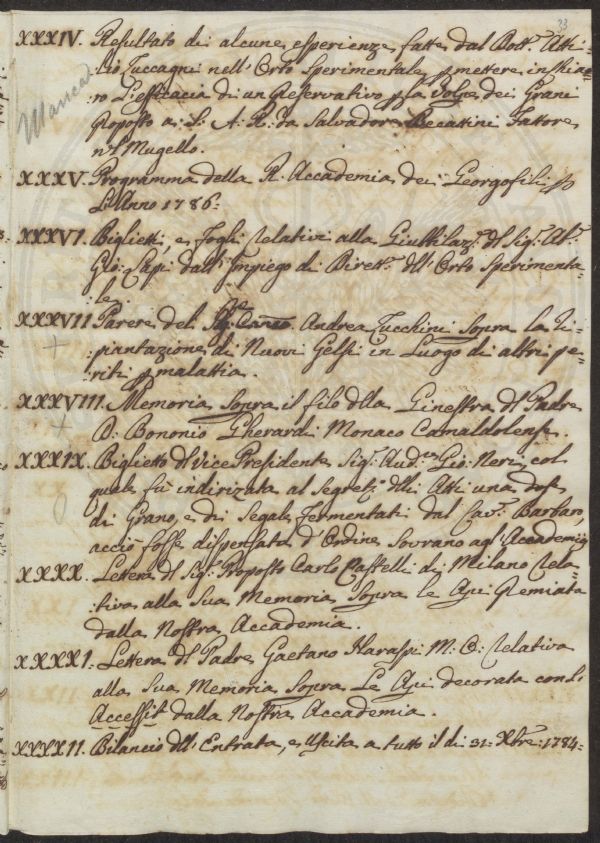 33
XXXIV. Resultato di alcune esperienze fatte dal Dott.r Atti-
:lio Zuccagni nell'Orto Sperimentale p mettere in chia-
Manca
:ro L'efficacia di un Preservativo p la Volpe dei Grani
Proposto a S. A. R. da Salvadore Becattini Fattore
n'l Mugello.
XXXV. Programma della R. Accademia dei Georgofili p
L'Anno 1786.
XXXVI. Biglietti, e Fogli relativi alla Giubbilaz.e d'l Sig.r Ab.e
Gio: Lapi dall'Impiego di Dirett.e dll'Orto Sperimenta-
:le.
XXXVII Parere del Andrea Zucchini Sopra la Ri-
:piantazione di Nuovi Gelsi in Luogo di altri pe-
:riti p malattia.
XXXVIII. Memoria Sopra il filo dlla Ginestra d'l Padre
D. Bononio Gherardi Monaco Camaldolense.
XXXIX. Biglietto d'l Vice Presidente Sig.r Aud.re Gio: Neri, col
quale fù indirizata al Segret.o dlli Atti una dose
di Grano, e di Segale fermentati dal Cav.r Barbaro,
acciò fosse dispensata d'Ordine Sovrano agl'Accademici
XXXX. Lettera d'l Sig.r Proposto Carlo Castelli di Milano rela-
:tiva alla Sua Memoria Sopra le Api Premiata
dalla Nostra Accademia.
XXXXI. Lettera d'l Padre Gaetano Harasti M. O. relativa
alla Sua Memoria Sopra Le Api decorata con l'
Accessit dalla Nostra Accademia.
XXXXII. Bilancio dll'Entrata, e Uscita a tutto il dì 31. Xbre. 1784.